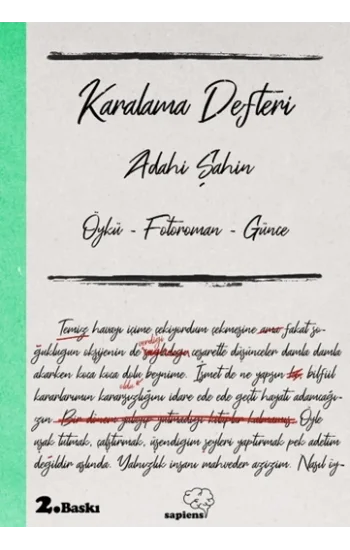 Karalama Defteri
Adahi Şahin
Öykü - Fotoroman - Günce
Temiz havayı içime çekiyordum çekmesine ama fakat so-
verdiği
ğukluğun oksijenin de sağladığı cesaretle düşünceler damla damla
akarken koca koca dola beynime. İsmet de ne yapsın
oldu
kararlarımın kararsızlığını idare ede ede geçti hayatı adamcağı-
zın. Bir dinme yatıp yutmadığı kitaplar kalmamış. Öyle
uşak tutmak, çalıştırmak, üşendiğim şeyleri yaptırmak pek adetim
değildir aslında. Yalnızlık insanı mahveder azizim. Nasıl iy-
2.Baskı
sapiens